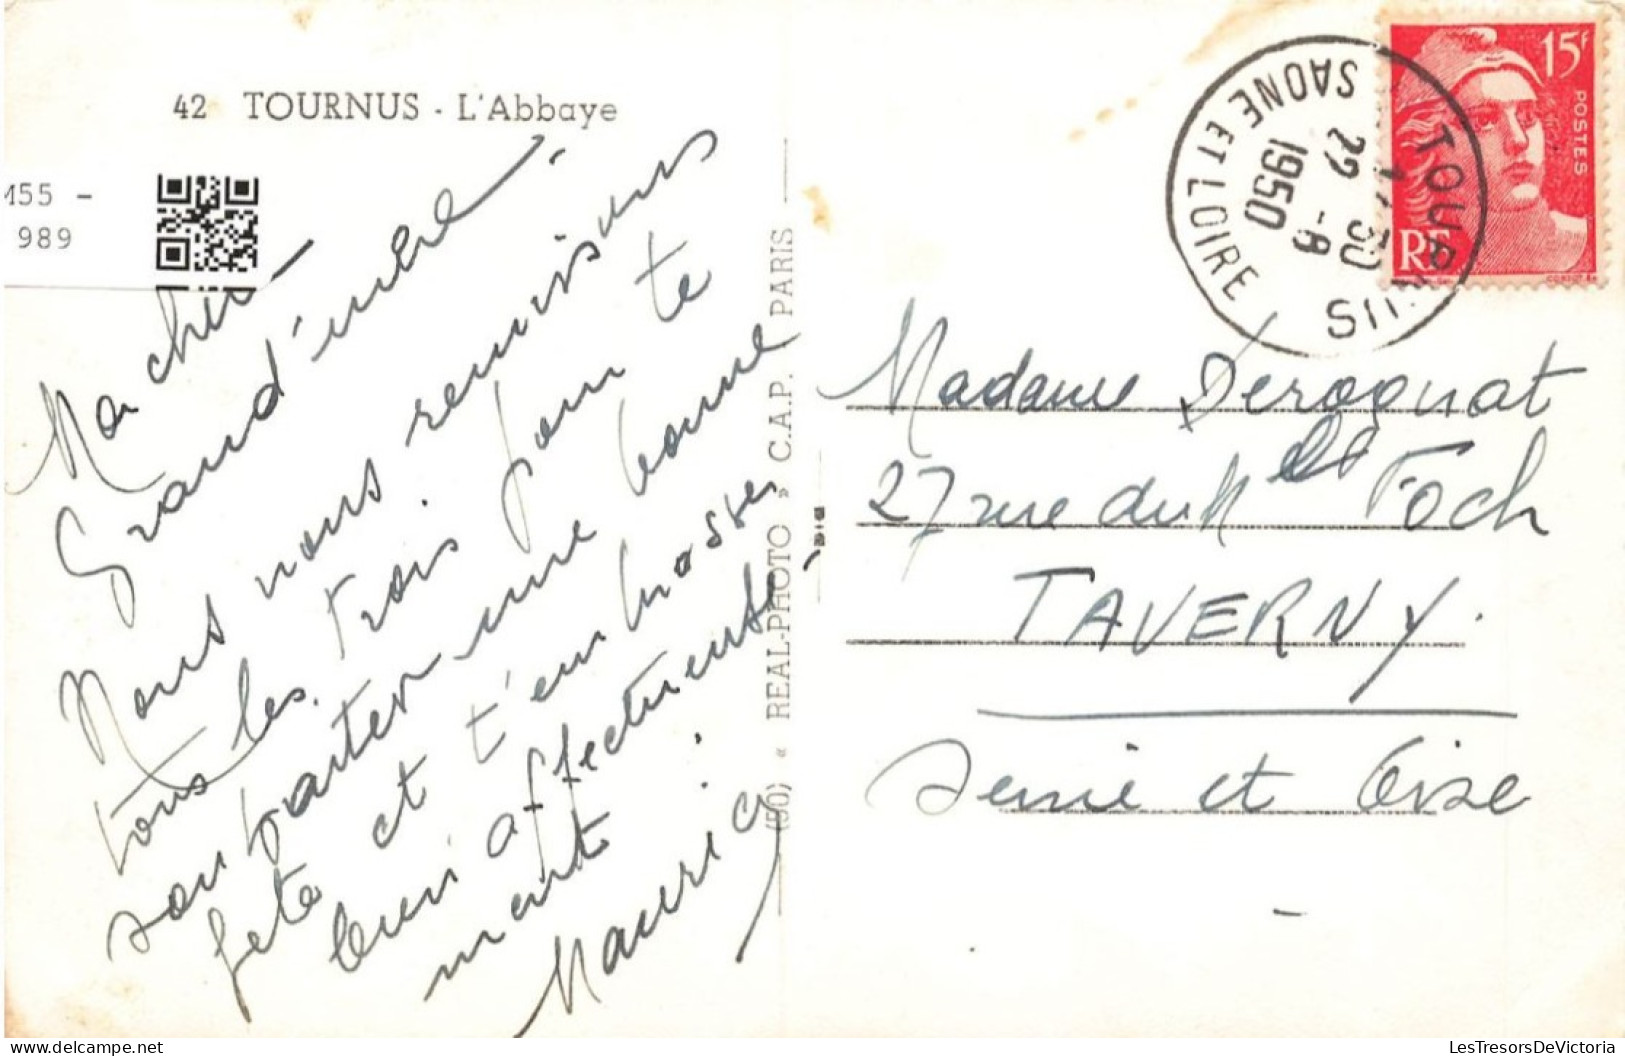 42 TOURNUS - L'Abbaye
M55 -
989
Ma chère
Grand'mère,
Nous nous réunissons
tous les trois pour te
souhaiter une bonne
fête et t'embrasser
bien affectueuse
ment.
Maurice
(50) « REAL-PHOTO » C.A.P. PARIS
15F
POSTES
RF
TOURNUS
SAONE ET LOIRE
22 - 8
1950
Madame Derognat
27 rue du Mal Foch
TAVERNY.
Seine et Oise
LesTresorsDeVictoria